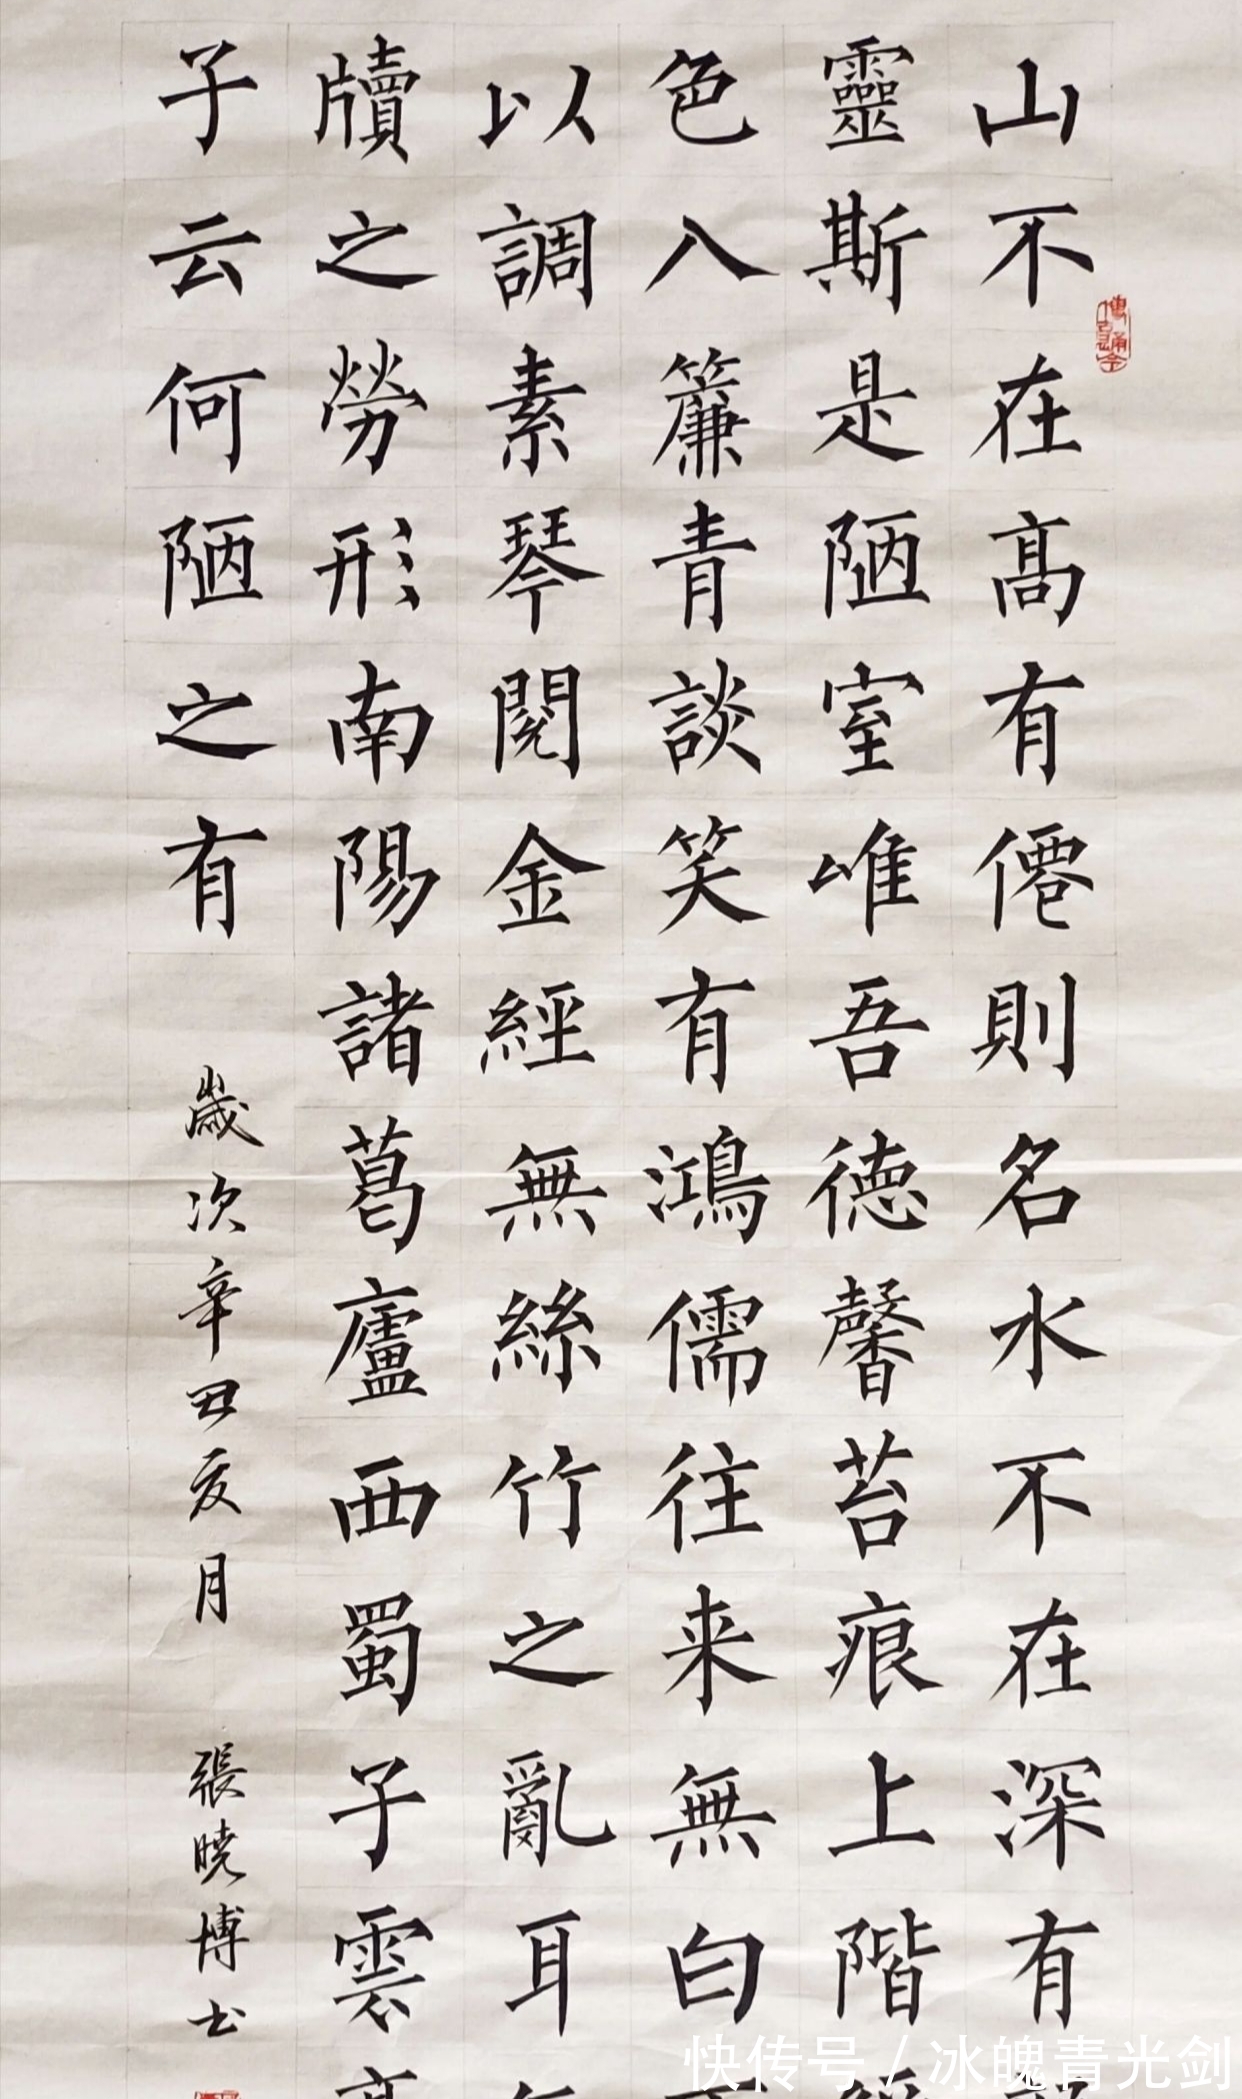 山不在高有僊則名水不在深有
靈斯是陋室唯吾德馨苔痕上階
色入簾青談笑有鴻儒往来無白
以調素琴閱金經無絲竹之亂耳
牘之勞形南陽諸葛廬西蜀子雲
子云何陋之有
歲次辛丑亥月
張曉博書
快传号/冰魄青光剑